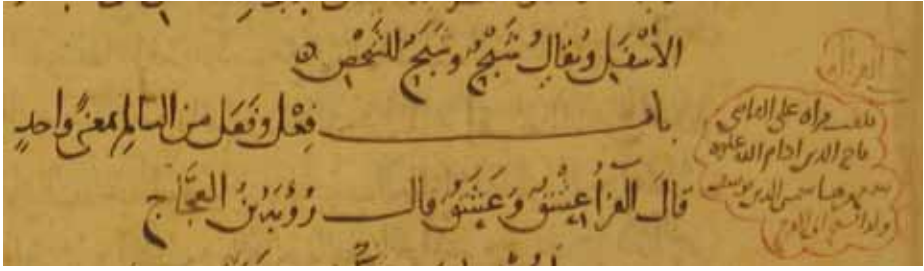 الأسْفَل ويُقالُ شَبْحٌ وشَبَحٌ للشَّخْصِ
باب فِعْل وفَعَل من السالِم بمعنًى واحدٍ
قالَ الفرّاءُ عِشْقٌ وَعَشَقٌ قال رُؤْبَةُ بنُ العَجّاج
بلغت قراءة على القاضي
تاج الدين ادام الله علوه
شمس الدين يوسف